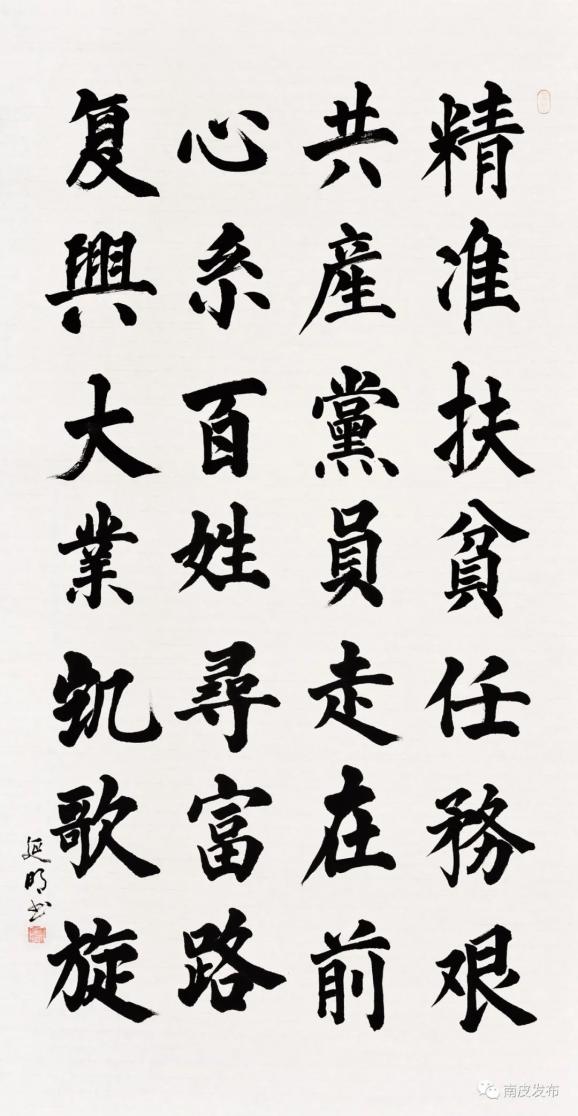 精准扶貧任務艰
共産黨員走在前
心系百姓尋富路
复興大業凯歌旋
延明书
南皮发布